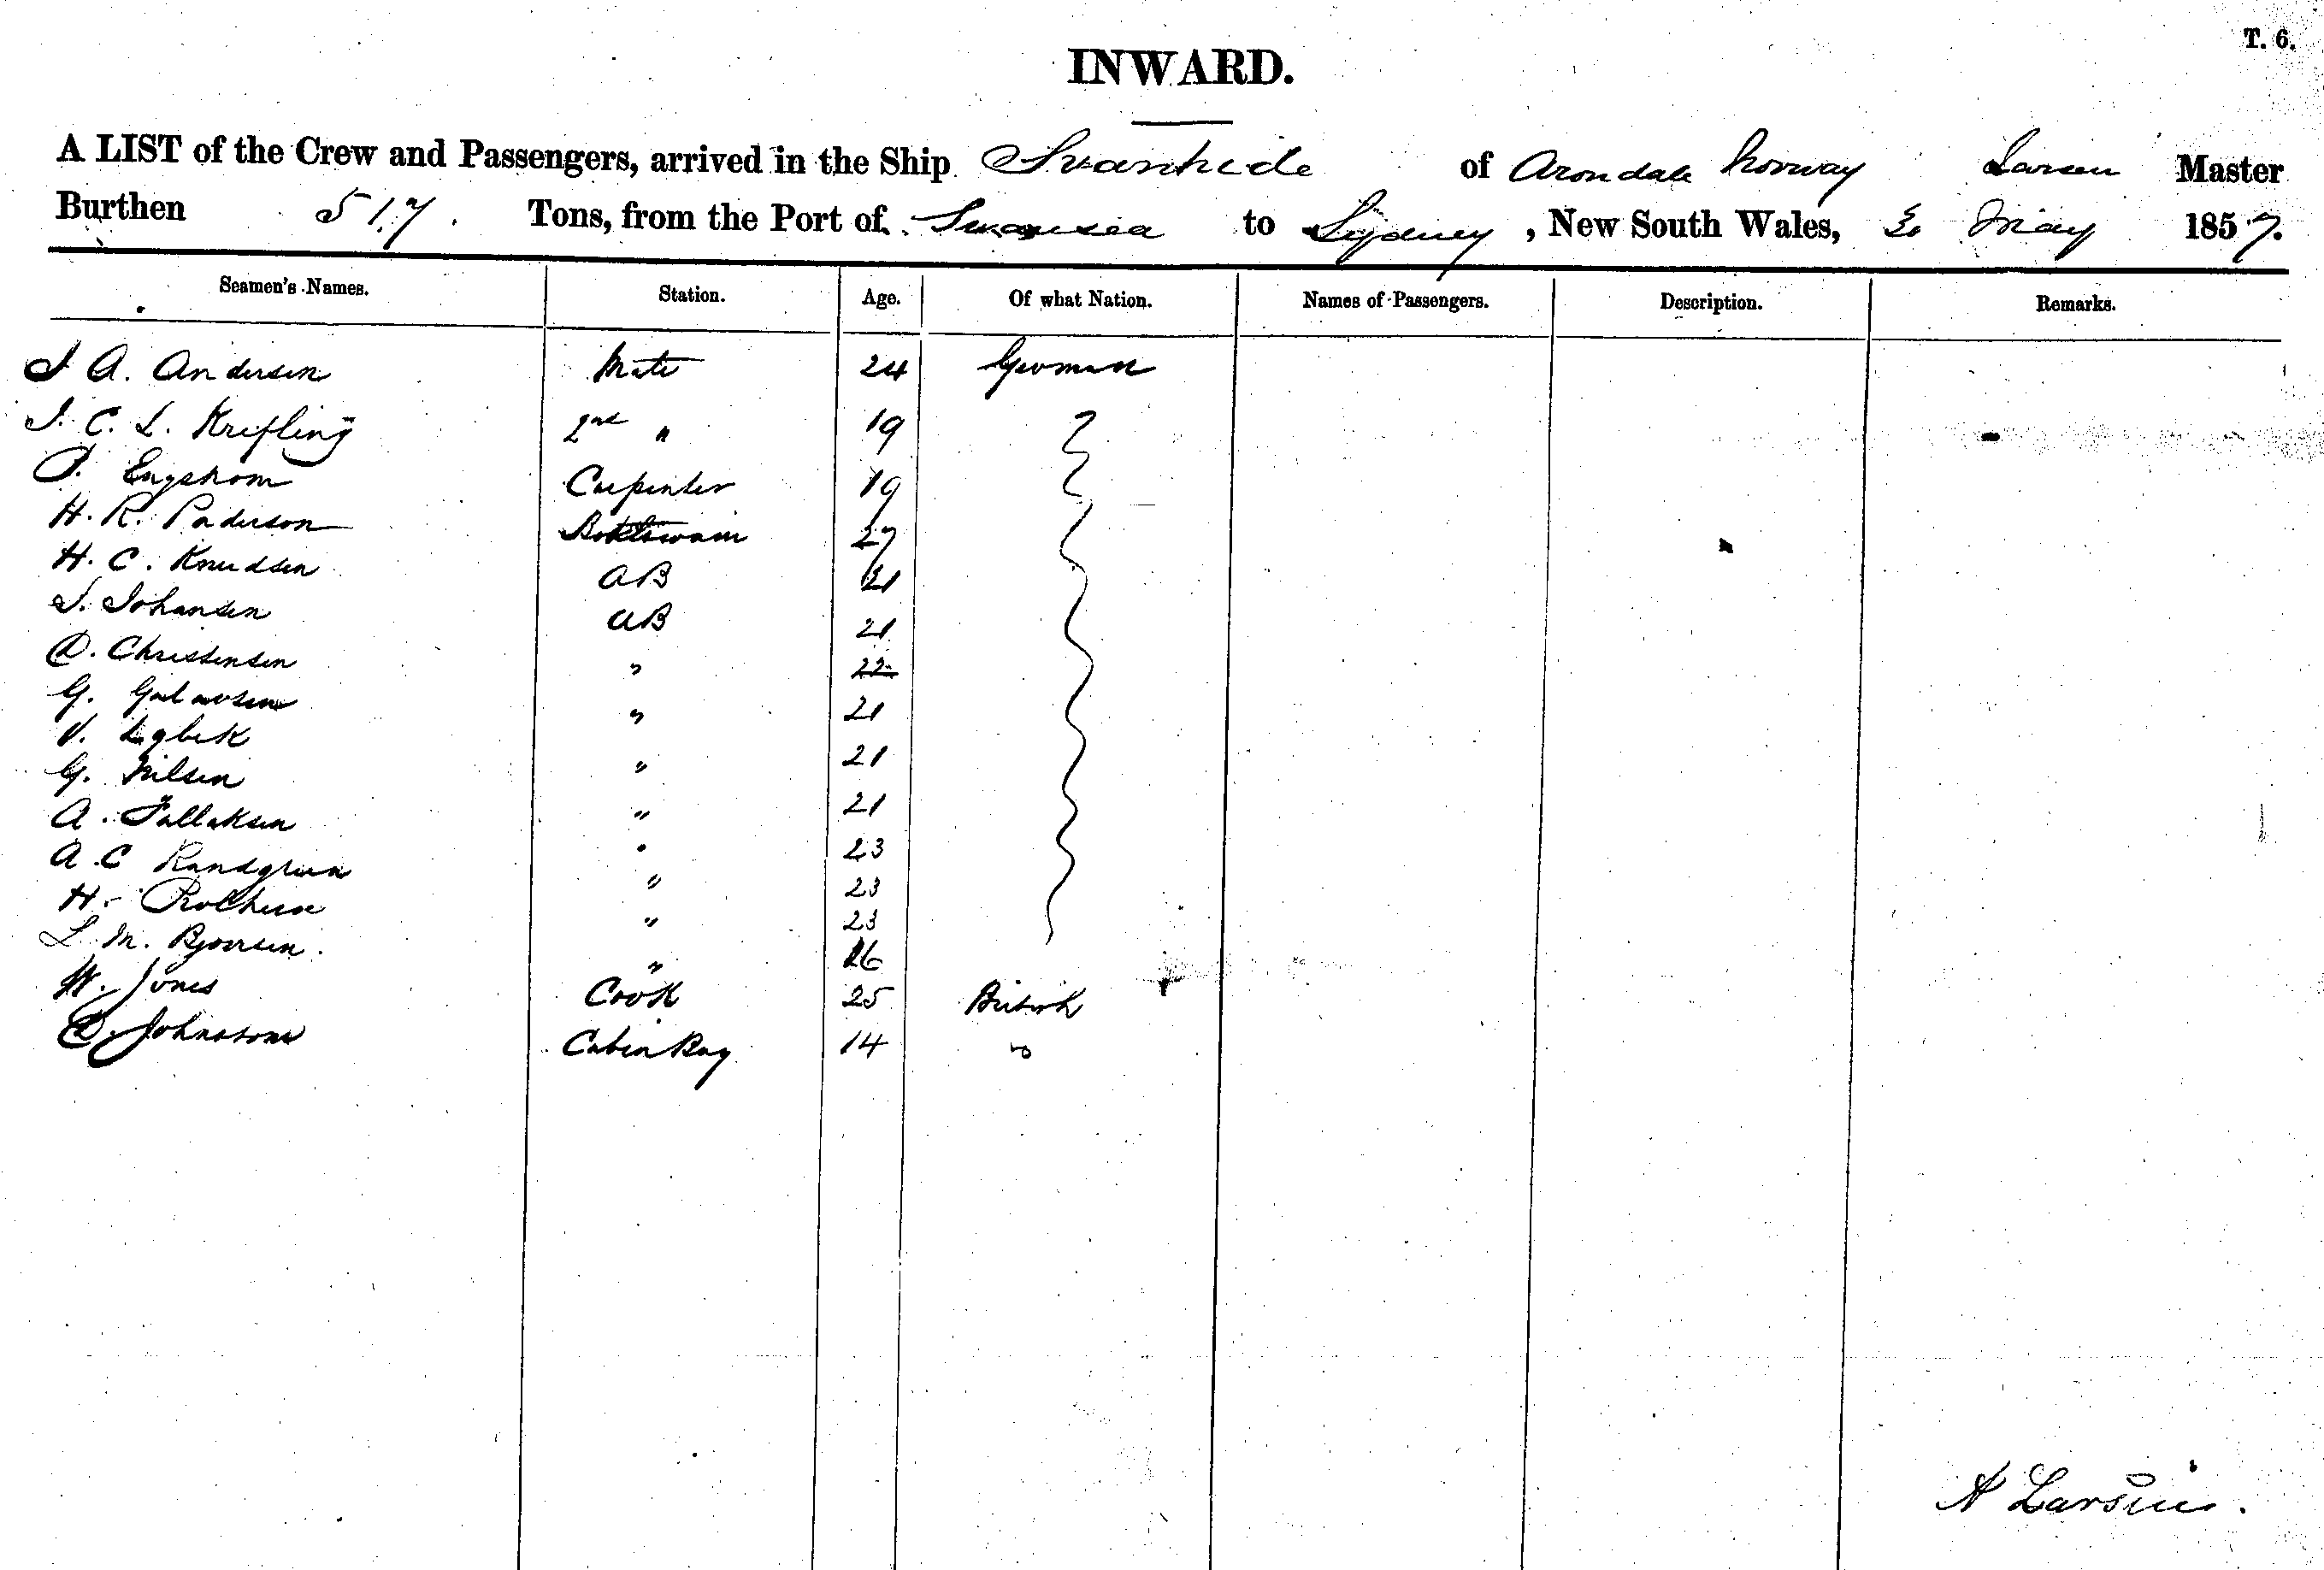 T. 6.
INWARD.
A LIST of the Crew and Passengers, arrived in the Ship Svanhide of Arondale Norway Larsen Master
Burthen 517. Tons, from the Port of Swansea to Sydney, New South Wales, May 1857.
Seamen's Names. Station. Age. Of what Nation. Names of Passengers. Description. Remarks.
J A. Andersen Mate 24 German
J. C. L. Krefling 2nd " 19
Engstrom Carpenter 19
H. R. Paderson Boatswain 27
H. C. Knudsen AB 21
J. Johansen AB 21
Christensen " 22
G. Gulavsen " 21
V. Lybek " 21
G. Nilsen " 21
A. Tallaksen " 23
A. C Randgren " 23
H. " 23
L. M. "
W. Jones Cook 25 British
Johnstone Cabin Boy 14 "
A Larsen.